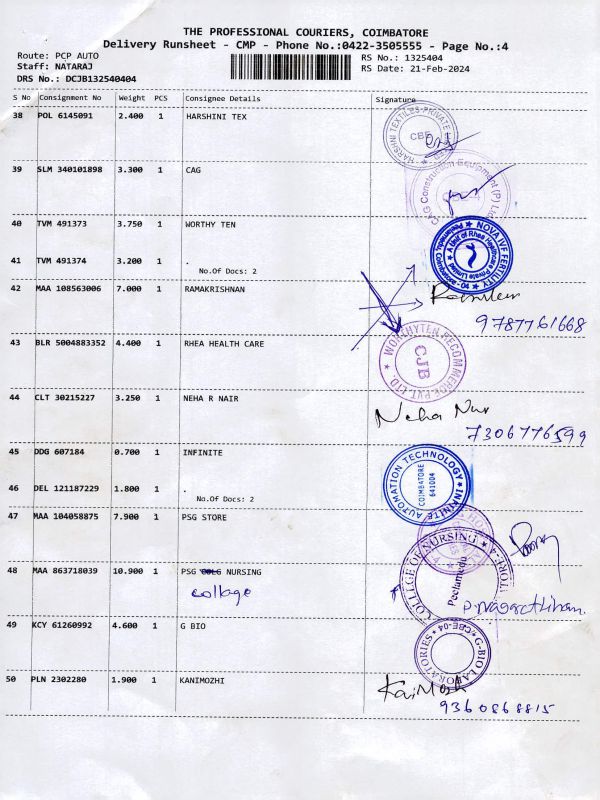 THE PROFESSIONAL COURIERS, COIMBATORE
Delivery Runsheet - CMP - Phone No.:0422-3505555 - Page No.:4
Route: PCP AUTO
RS No.: 1325404
Staff: NATARAJ
RS Date: 21-Feb-2024
DRS No.: DCJB132540404
S No Consignment No Weight PCS Consignee Details Signature
38 POL 6145091 2.400 1 HARSHINI TEX
HARSHINI TEXTILES PRIVATE
CBE
39 SLM 340101898 3.300 1 CAG
CAG Construction Equipment (P) Ltd
40 TVM 491373 3.750 1 WORTHY TEN
NOVA IVF FERTILITY
A Unit of Rhea Healthcare Private Limited
41 TVM 491374 3.200 1 .
No.Of Docs: 2
42 MAA 108563006 7.000 1 RAMAKRISHNAN
9787761668
43 BLR 5004883352 4.400 1 RHEA HEALTH CARE
WORTHYTEN RECOMMERCE PVT. LTD.
CJB
44 CLT 30215227 3.250 1 NEHA R NAIR
Neha Nur
7306776599
45 DDG 607184 0.700 1 INFINITE
INFINITE AUTOMATION TECHNOLOGY
COIMBATORE
641004
46 DEL 121187229 1.800 1 .
No.Of Docs: 2
47 MAA 104058875 7.900 1 PSG STORE
48 MAA 863718039 10.900 1 PSG NURSING
collage
COLLEGE OF NURSING
Peelamedu
49 KCY 61260992 4.600 1 G BIO
G-BIO LABORATORIES
CBE-04
50 PLN 2302280 1.900 1 KANIMOZHI
9360868815